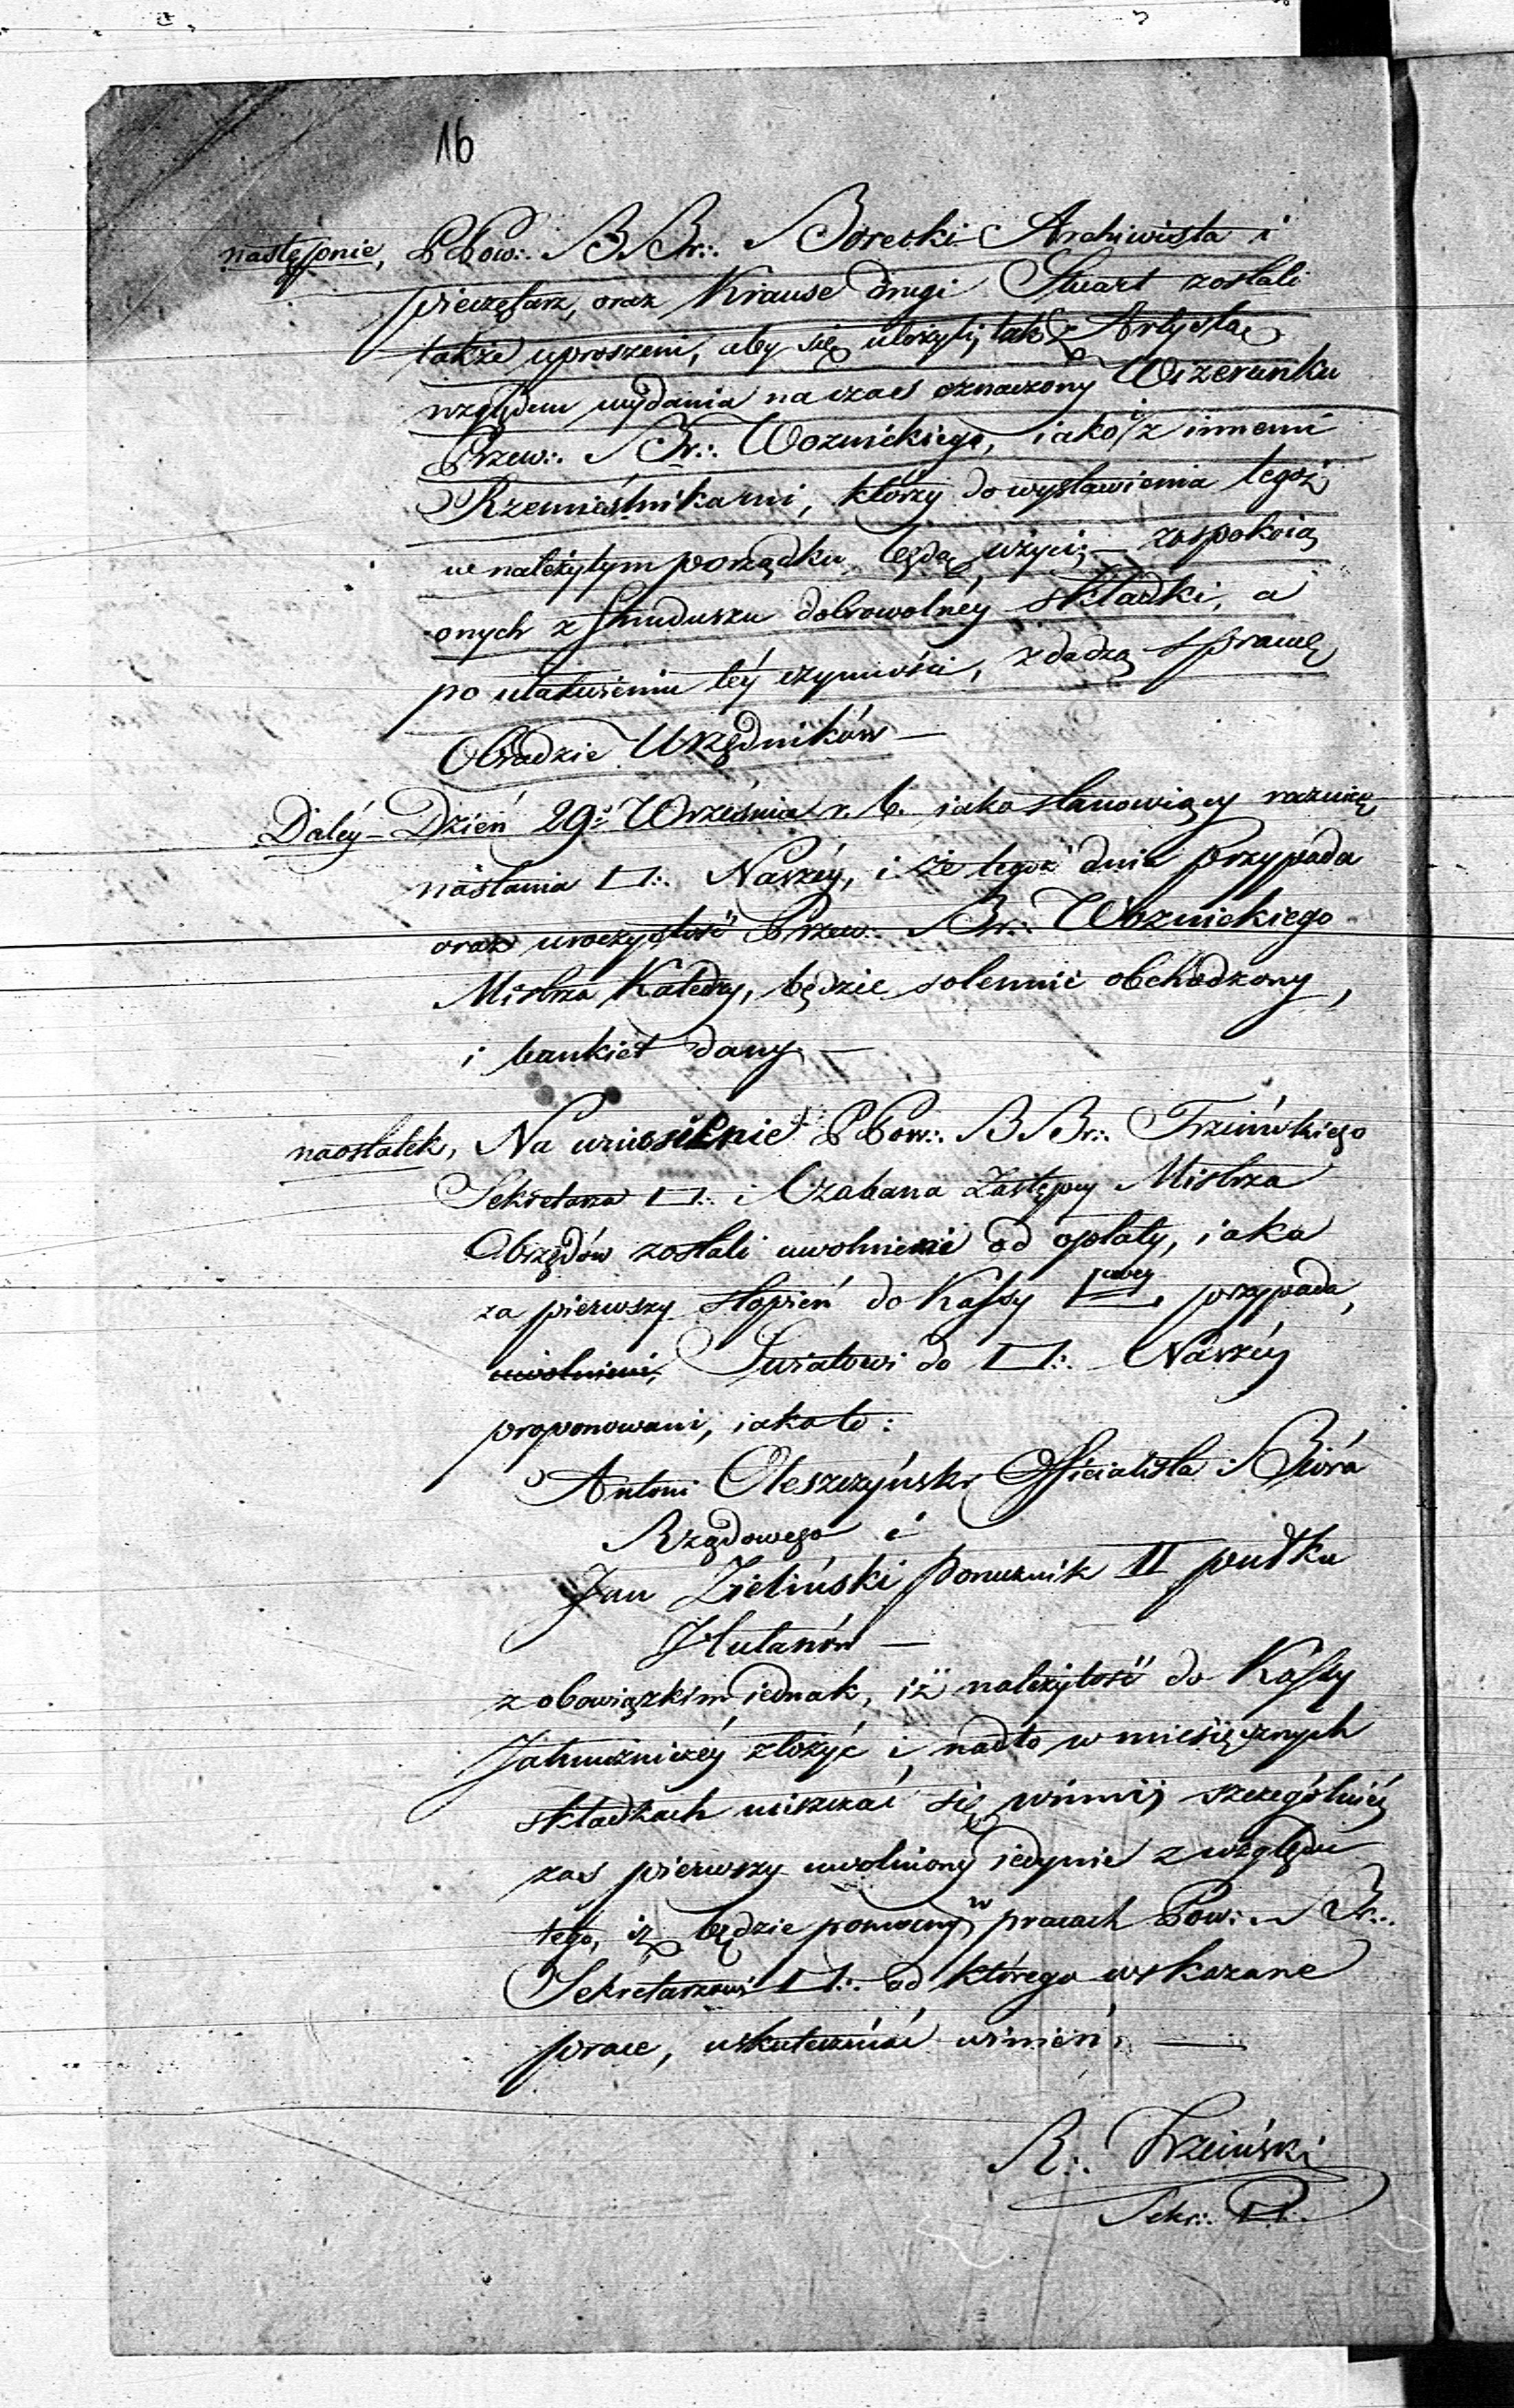 16
następnie, PPow∴ BBr∴ Borecki Archiwista i
pieczętarz, oraz Krause drugi Stuart zostali
także uproszeni, aby się ułożyli, tak z Artystą
względem wydania na czas oznaczony Wizerunku
Przew∴ Br∴ Woznickiego, iako i z innemi
Rzemieślnikami, którzy do wystawienia tegoż
w należytym porządku będą użyci; — zaspokoią
onych z funduszu dobrowolnéy składki, a
po ułatwieniu téy czynności, zdadzą sprawę
Obradzie Urzędników —
Daléy — Dzień 29º Września r. b. iako stanowiący rocznicę
nastania ▭∴ Naszéy, i że tegoż dnia przypada
oraz uroczystość Przew∴ Br∴ Woznickiego
Mistrza Katedry, będzie solennie obchodzony,
i bankiet dany —
naostatek, Na wniesienie PPow∴ BBr∴ Trzcińskiego
Sekretarza ▭∴ i Czabana Zastępcy Mistrza
Obrzędów zostali uwolnieni od opłaty, iaka
za pierwszy stopień do Kassy ▭owey przypada,
uwolnieni, Światowi do ▭∴ Naszéy
proponowani, iako to:
Antoni Oleszczyński Officialista Biora
Rządowego i
Jan Zieliński Porucznik II pułku
Hułanów —
z obowiązkim iednak, iż należytość do Kassy
Jałmużniczéy złożyć i nadto w miesięcznych
składkach uiszczać się winni; szczególniéy
zas pierwszy uwolniony iedynie z względu
tego, iż będzie pomocny w pracach Pow∴ Br∴
Sekretarzowi ▭∴ od którego wskazane
prace, uskuteczniać winien. —
R∴ Trzciński
Sekr∴ ▭∴